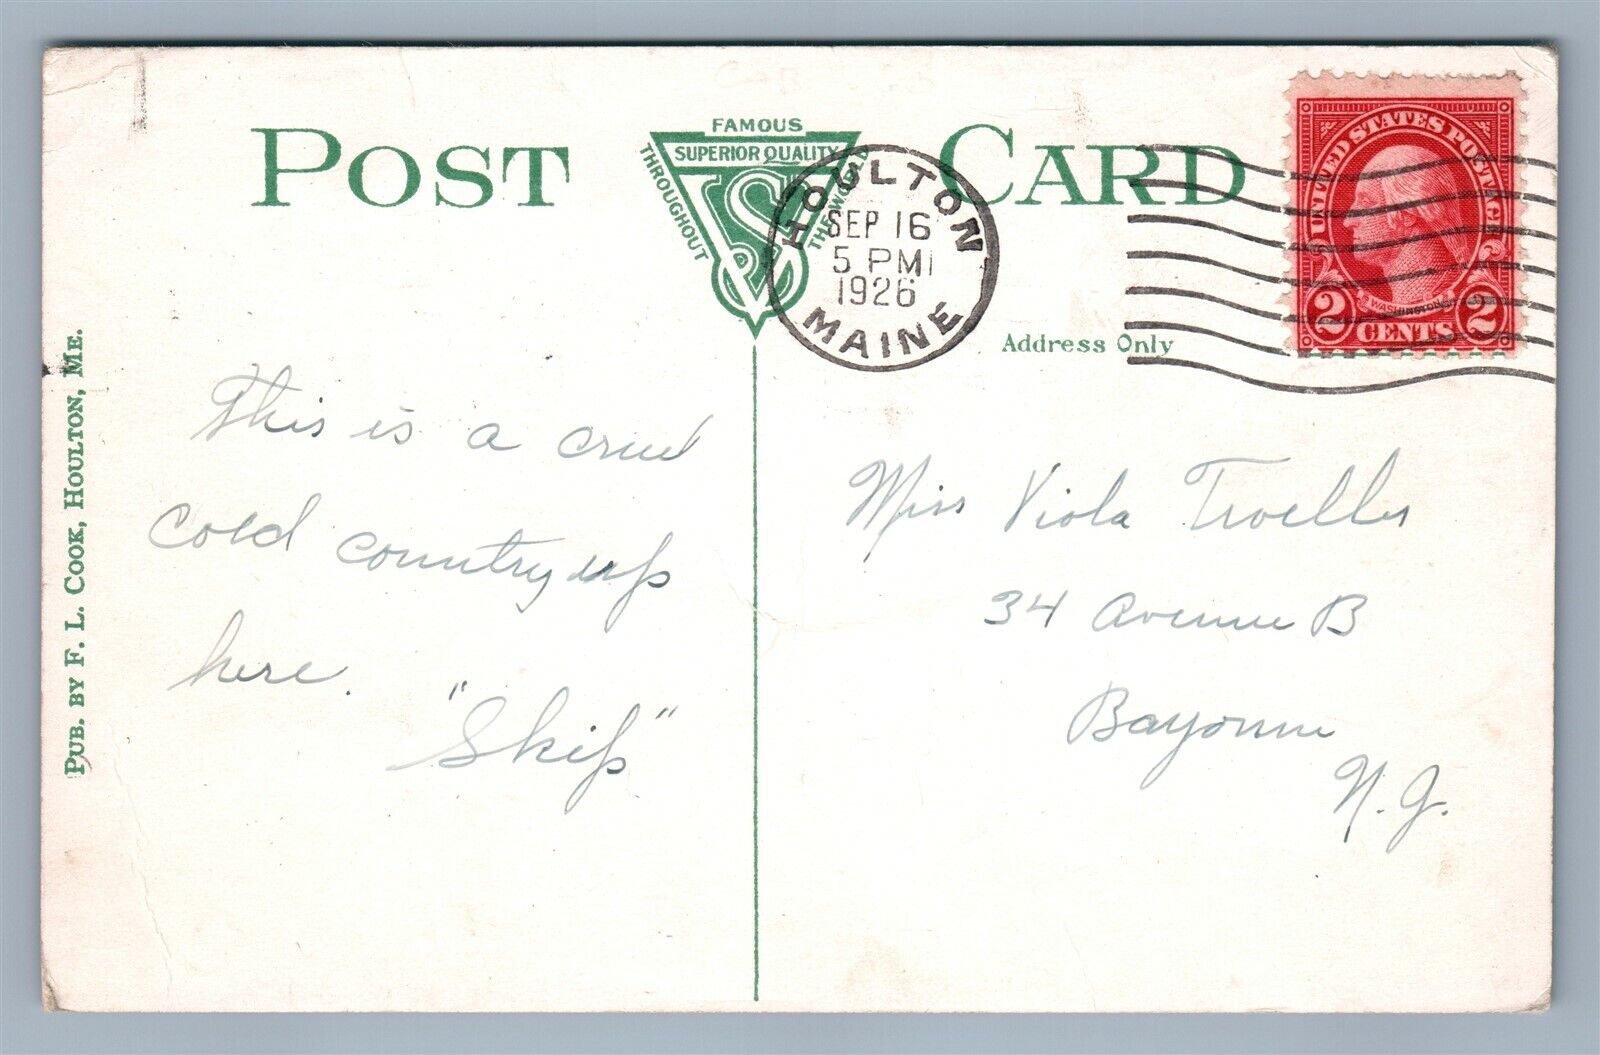 POST CARD
FAMOUS
SUPERIOR QUALITY
THROUGHOUT
THE WORLD
VS
HOULTON
SEP 16
5 PM
1926
MAINE
UNITED STATES POSTAGE
WASHINGTON
2 CENTS 2
Address Only
PUB. BY F. L. COOK, HOULTON, ME.
This is a cruel
cold country up
here.
"Skip"
Miss Viola Troeller
34 Avenue B
Bayonne
N. J.